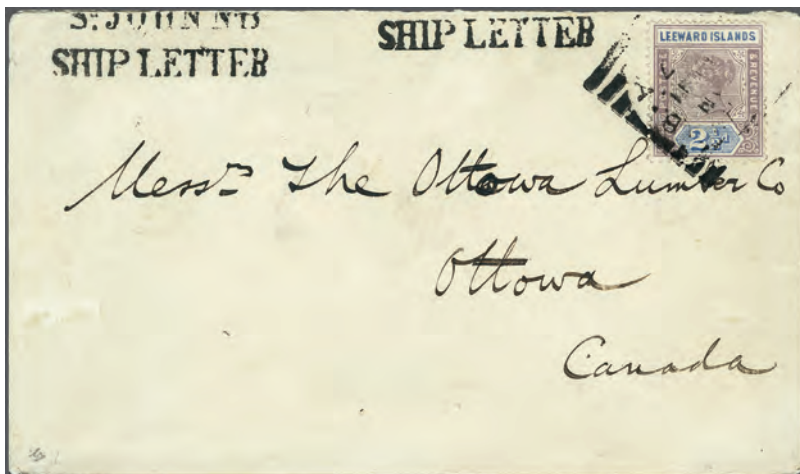 ST. JOHN N.B
SHIP LETTER
SHIP LETTER
LEEWARD ISLANDS
& REVENUE
2½d
Messrs The Ottowa Lumber Co
Ottowa
Canada